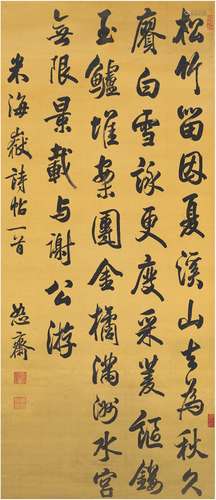 松竹留因夏溪山去為秋久
賡白雪詠更度采菱謳鏤
玉鱸堆案團金橘滿洲水宮
無限景載與謝公游
米海嶽詩帖一首
怒齋